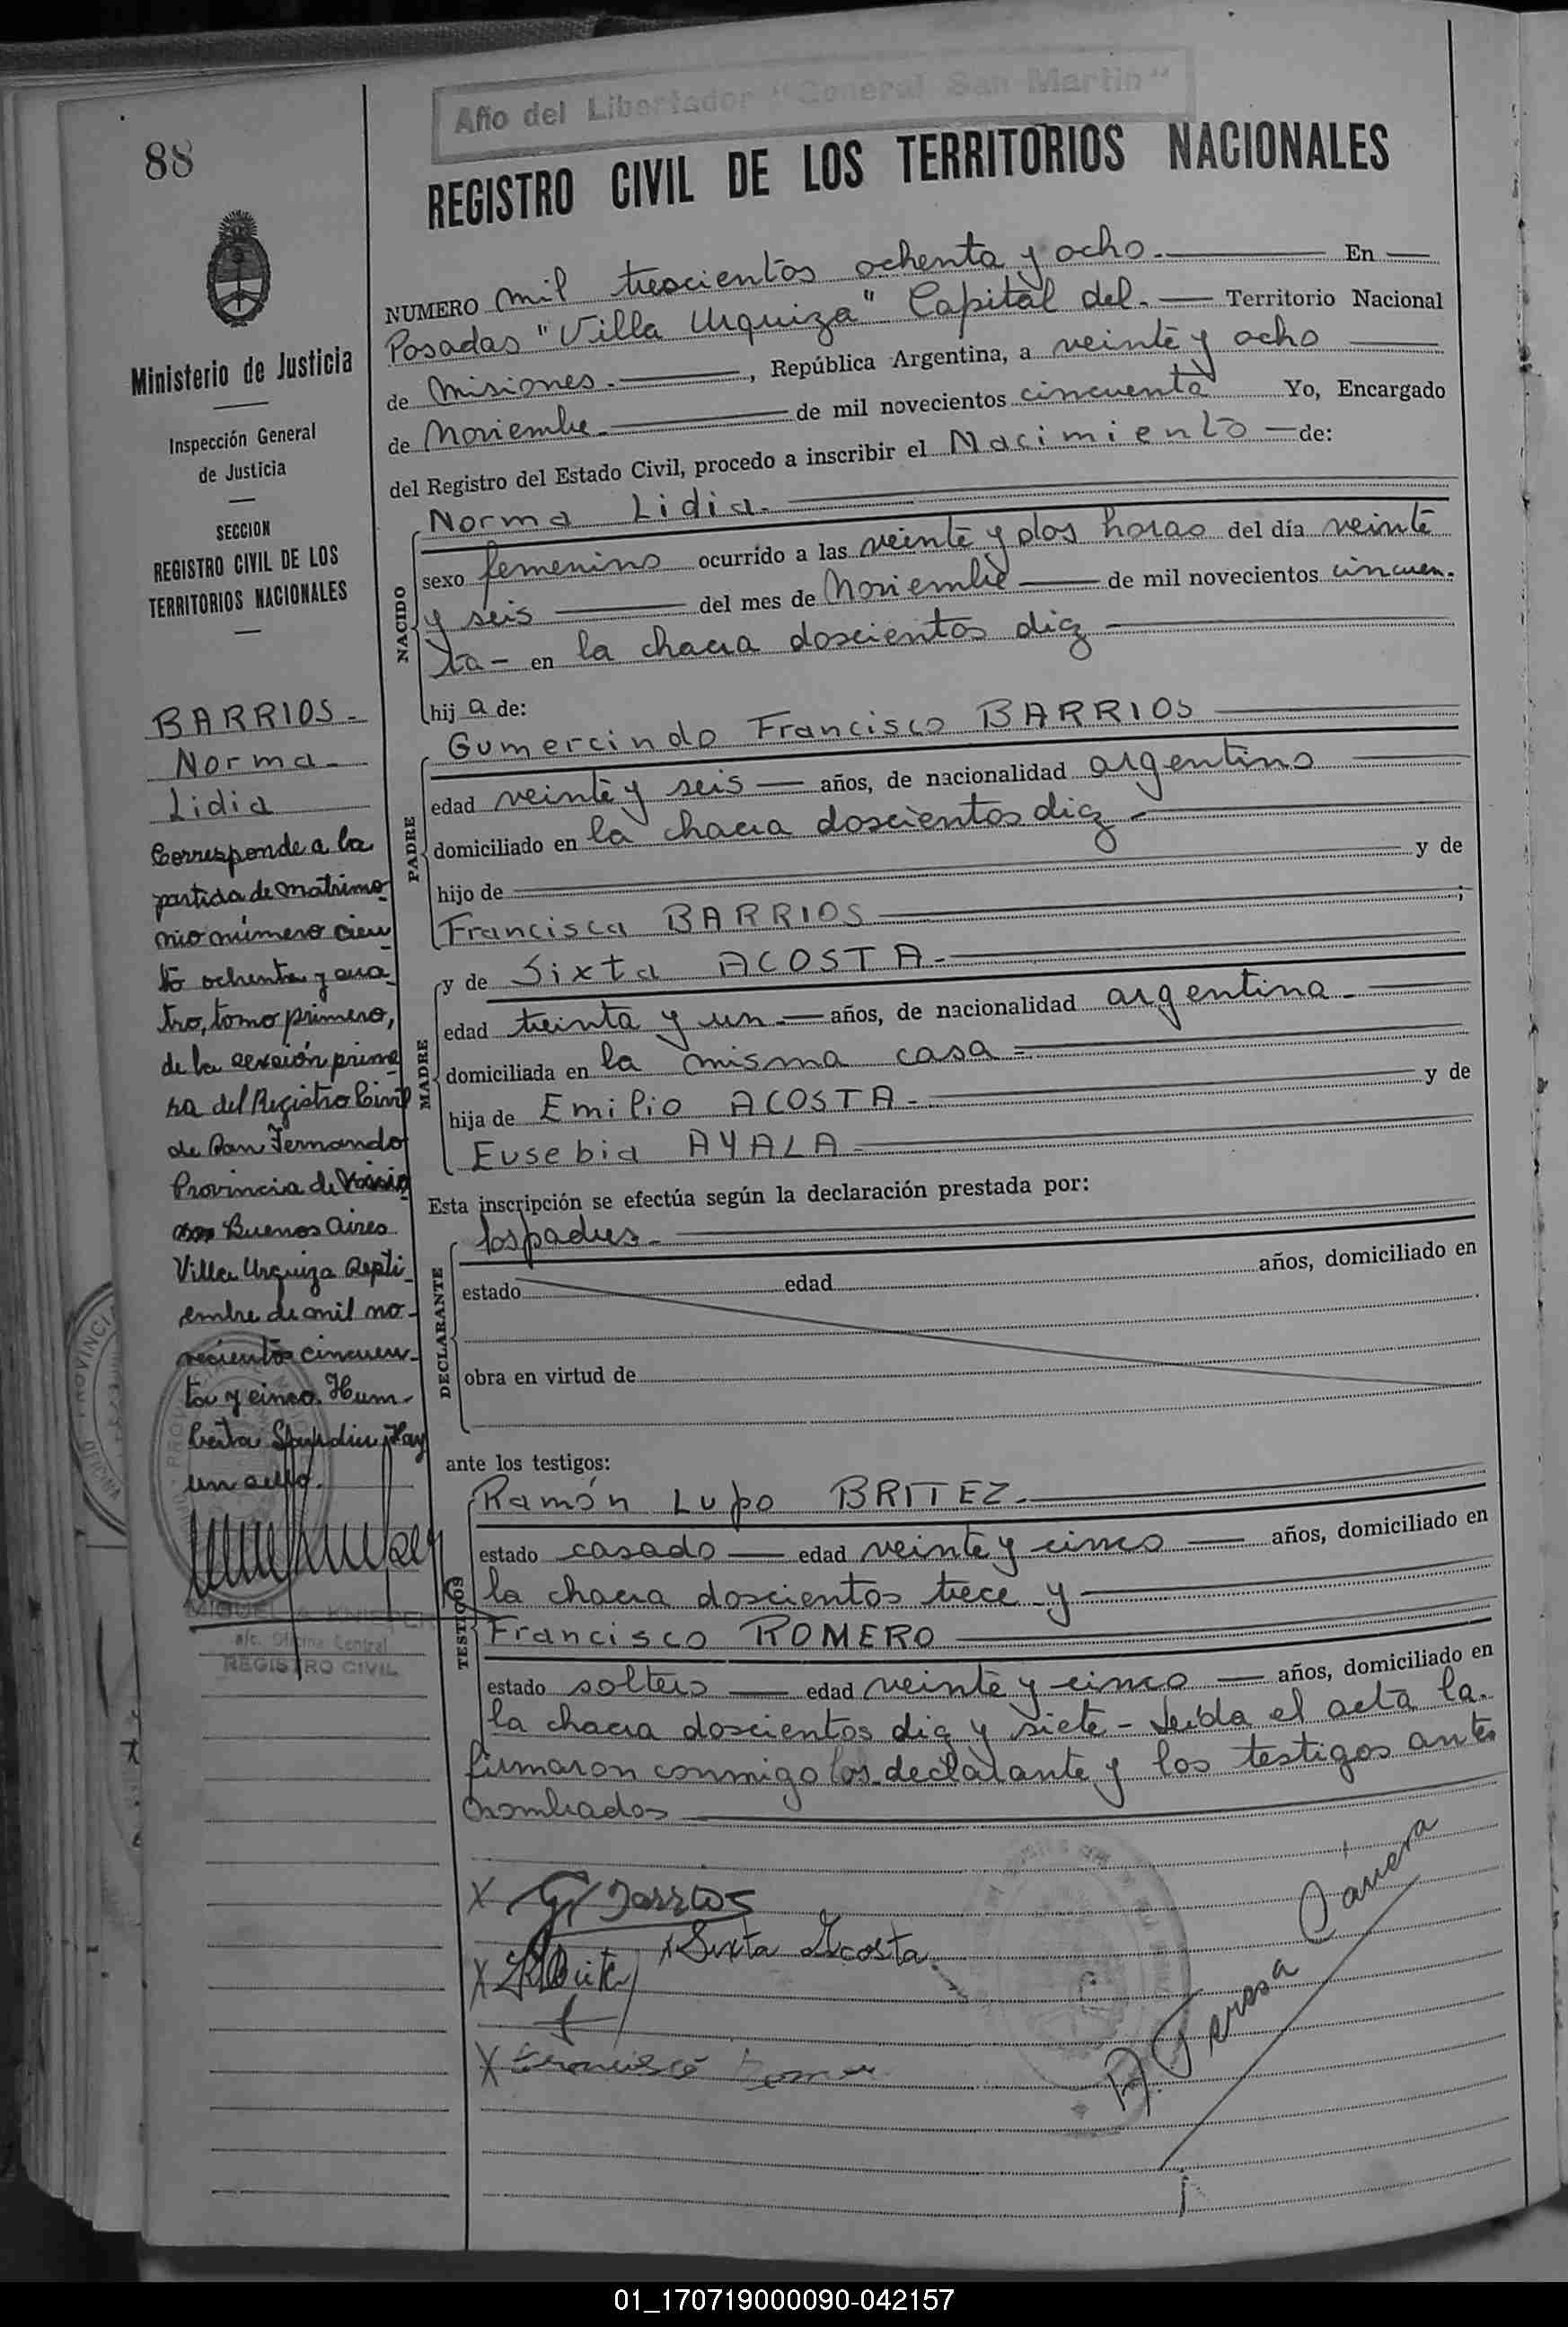 Año del Libertador "General San Martín"
88
REGISTRO CIVIL DE LOS TERRITORIOS NACIONALES
Ministerio de Justicia
Inspección General
de Justicia
SECCION
REGISTRO CIVIL DE LOS
TERRITORIOS NACIONALES
BARRIOS-
Norma-
Lidia
Corresponde a la
partida de matrimo
nio número cien
to ochenta y cua
tro, tomo primero,
de la sección prime
ra del Registro Civil
de San Fernando
Provincia de
Buenos Aires
Villa Urquiza Septi
embre de mil no-
vecientos cincuen-
ta y cinco. Hum-
Hay
un sello.
a/c. Oficina Central
REGISTRO CIVIL
NUMERO mil trescientos ochenta y ocho.- En
Posadas "Villa Urquiza" Capital del.- Territorio Nacional
de Misiones.-, República Argentina, a veinte y ocho
de Noviembre.- de mil novecientos cincuenta Yo, Encargado
del Registro del Estado Civil, procedo a inscribir el Nacimiento de:
NACIDO
Norma Lidia.-
sexo femenino ocurrido a las veinte y dos horas del día veinte
y seis del mes de Noviembre de mil novecientos cincuen-
ta- en la chacra doscientos diez
hij a de:
PADRE
Gumercindo Francisco BARRIOS
edad veinte y seis años, de nacionalidad argentino
domiciliado en la chacra doscientos diez-
hijo de y de
Francisca BARRIOS ;
MADRE
y de Sixta ACOSTA.-
edad treinta y un.- años, de nacionalidad argentina-
domiciliada en la misma casa
hija de Emilio ACOSTA.- y de
Eusebia AYALA-
Esta inscripción se efectúa según la declaración prestada por:
DECLARANTE
los padres-
estado edad años, domiciliado en
obra en virtud de
ante los testigos:
TESTIGOS
Ramón Lupo BRITEZ.-
estado casado edad veinte y cinco años, domiciliado en
la chacra doscientos trece y
Francisco ROMERO
estado soltero edad veinte y cinco años, domiciliado en
la chacra doscientos diez y siete- Leída el acta la-
firmaron conmigo los declarante y los testigos antes
nombrados
X G Barrios
X Sixta Acosta
X
X Francisco
A. Teresa
01_170719000090-042157